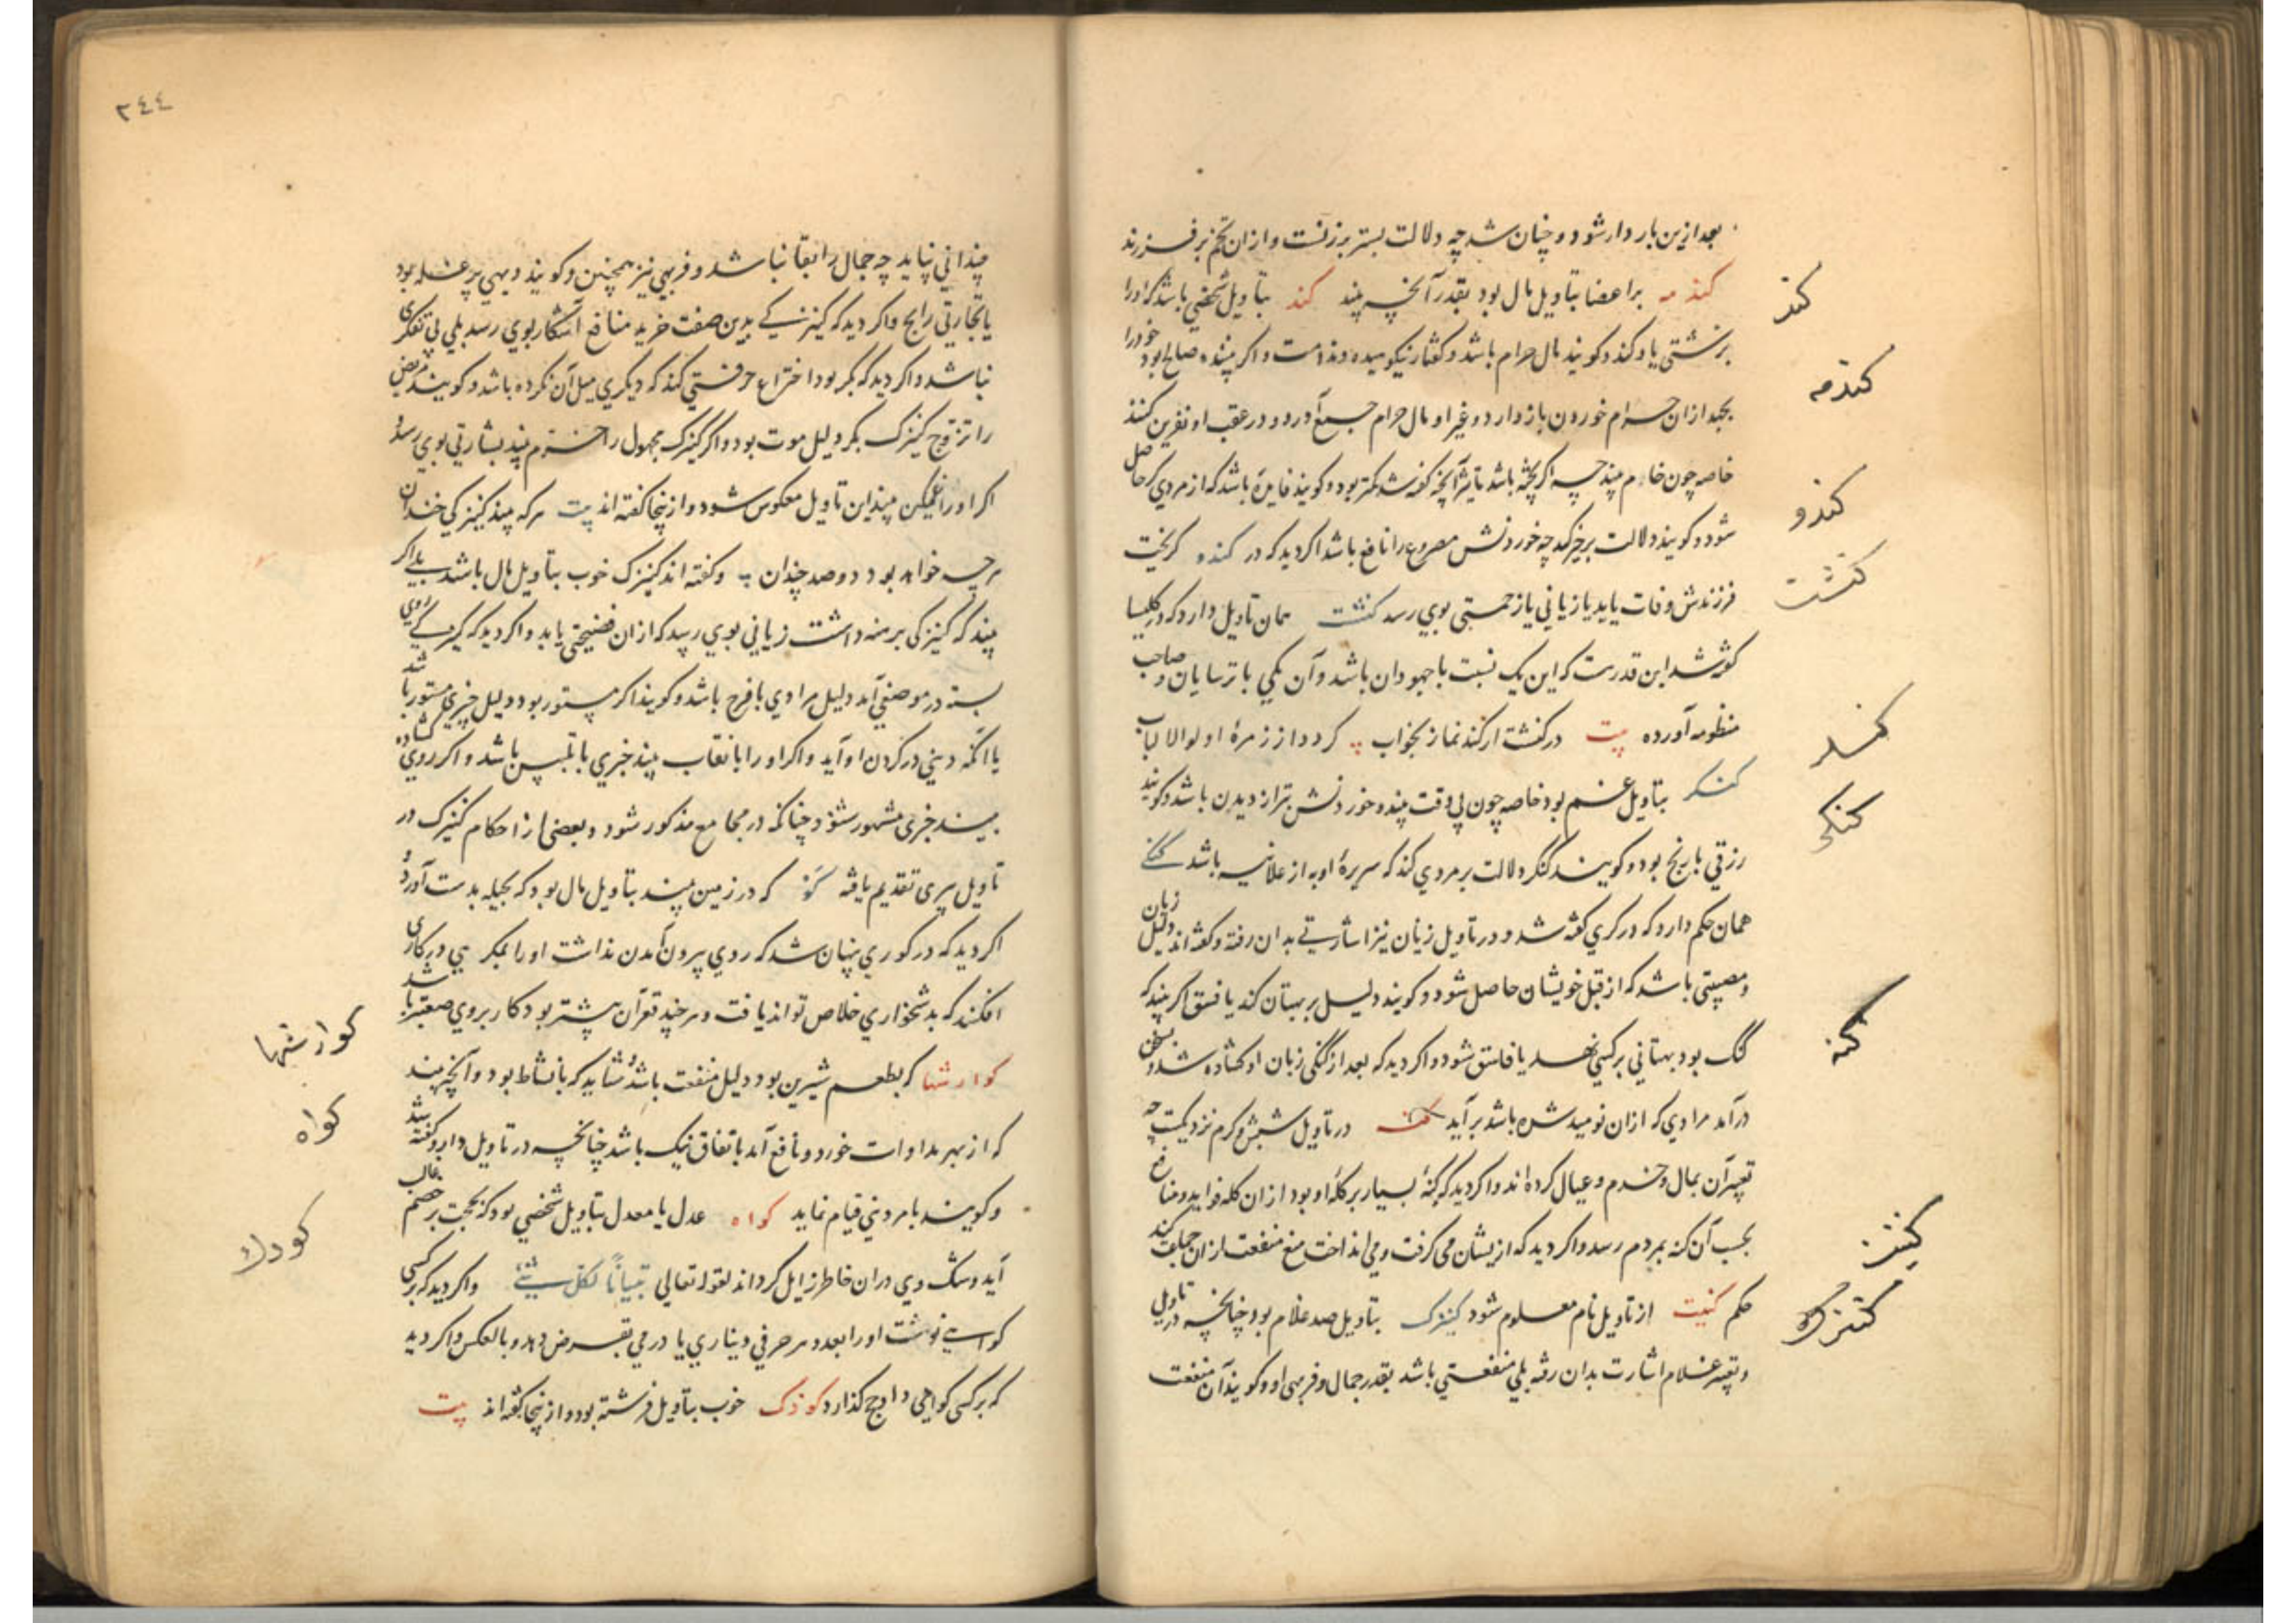 بعد ازین بار دار شود و چنان شد چه دلالت بستر بر زنست و از آن تخم بر فرزند
کندمه بر اعضا بتاویل مال بود بقدر آنچه بیند کند بتاویل شخصی باشد که او را
بزشتی یاد کند و کویند مال حرام باشد و کفتار نیکو میده و ندامت و اکر بیننده صالح بود خود را
بجهد از ان حرام خوردن باز دارد و غیر او مال حرام جمع آورد و در عقب او نفرین کنند
خاصه چون خام بیند چه اکر پخته باشد تاثیر آنچه کفته شد کمتر بود و کویند فایده باشد که از مردی حاصل
شود و کویند دلالت بر خیر کند چه خوردنش مصروع را نافع باشد اکر دید که در کندو کریخت
فرزندش وفات یابد یا زیانی یا زحمتی بوی رسد کنشت همان تاویل دارد که در کلیسا
کفته شد این قدرست که این یک نسبت با جهودان باشد و آن یکی با ترسایان و صاحب
منظومه آورده بیت در کنشت ار کند نماز بخواب کردد از زمرهٔ اولوالالباب
کنکر بتاویل غم بود خاصه چون بی وقت بیند و خوردنش بتر از دیدن باشد و کویند
رزقی با رنج بود و کویند کنکر دلالت بر مردی کند که سریرهٔ او به از علانیه باشد کنکی
همان حکم دارد که در کری کفته شد و در تاویل زبان نیز اشارتی بدان رفته و کفته اند دلیل زیان
و مصیبتی باشد که از قبل خویشان حاصل شود و کویند دلیل بر بهتان کند یا فسق اکر بیند که
کنک بود بهتانی بر کسی نهد یا فاسق شود و اکر دید که بعد از کنکی زبان او کشاده شد و بسخن
در آمد مرادی که از ان نومید شده باشد بر آید کنه در تاویل شپش و کرم نزدیکست چه
تعبیر آن بمال و خدم و عیال کرده اند و اکر دید که کنهٔ بسیار بر کلهٔ او بود از ان کله فواید و منافع
بحسب آن کنه بمردم رسد و اکر دید که ازیشان می کرفت و می انداخت منع منفعت از ان جماعت کند
حکم کنیت از تاویل نام معلوم شود کنیزک بتاویل ضد غلام بود چنانچه در تاویل
و تعبیر غلام اشارت بدان رفته بلی منفعتی باشد بقدر جمال و فربهی او و کویند آن منفعت
کند
کندمه
کندو
کنشت
کنکر
کنکی
کنه
کنیت
کنیزک
۲۴۴
چندانی نپاید چه جمال را بقا نباشد و فربهی نیز همچنین و کویند دیهی پر غله بود
یا تجارتی رابح و اکر دید که کنیزکی بدین صفت خرید منافع آشکار بوی رسد بلی بی تفکری
نباشد و اکر دید که بکر بود اختراع حرفتی کند که دیکری میل آن نکرده باشد و کویند مریض
را تزوج کنیزک بکر دلیل موت بود و اکر کنیزک مجهول را خرم بیند بشارتی بوی رسد و
اکر او را غمکین بیند این تاویل معکوس شود و از ینجا کفته اند بیت هرکه بیند کنیزکی خندان
هرچه خواهد بود دو صد چندان و کفته اند کنیزک خوب بتاویل مال باشد بلی اکر
بیند که کنیزکی برهنه داشت زیانی بوی رسد که از ان فضیحتی یابد و اکر دید که کنیزکی روی
بسته در موضعی آمد دلیل مرادی با فرح باشد و کویند اکر مستور بود دلیل خبری مستور باشد
یا آنکه دینی در کردن او آید و اکر او را با نقاب بیند خبری با تلبیس باشد و اکر روی کشاده
بیند خبری مشهور شنود چنانکه در مجامع مذکور شود و بعضی از احکام کنیزک در
تاویل پری تقدیم یافته کو که در زمین بیند بتاویل مال بود که بحیله بدست آورد و
اکر دید که در کوری پنهان شد که روی بیرون آمدن نداشت او را بمکر می در کاری
افکنند که بدشخواری خلاص تواند یافت و هر چند قعر آن بیشتر بود کار بر وی صعبتر باشد
کوارشها که بطعم شیرین بود دلیل منفعت باشد و شاید که با نشاط بود و آنچه بیند
که از بهر مداوات خورد و نافع آمد باتفاق نیک باشد چنانچه در تاویل دارو کفته شد
و کویند بامر دینی قیام نماید کواه عدل یا معدل بتاویل شخصی بود که بحجت بر خصم غالب
آید و شک وی در ان خاطر زایل کرداند لقوله تعالی تبیانًا لکل شیئ و اکر دید که بر کسی
کواهی نوشت او را بعدد هر حرفی دیناری یا درمی بقرض دهد و بالعکس و اکر دید
که بر کسی کواهی داد حج کذارد کودک خوب بتاویل فرشته بود و از ینجا کفته اند بیت
کوارشها
کواه
کودک